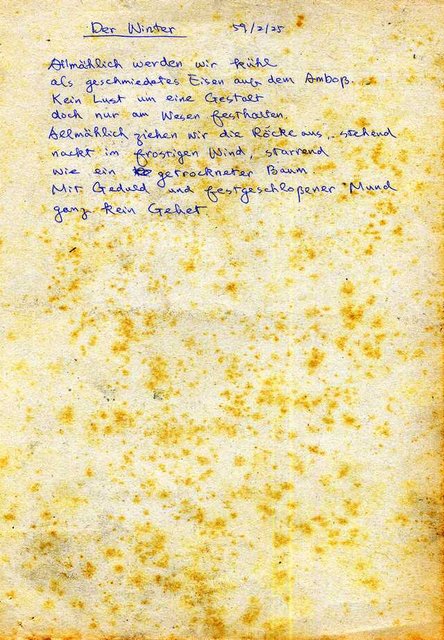 Der Winter 59/2/25
Allmählich werden wir kühl
als geschmiedetes Eisen auf dem Amboß.
Kein Lust um eine Gestalt
doch nur am Wesen festhalten.
Allmählich ziehen wir die Röcke aus, stehend
nackt im frostigen Wind, starrend
wie ein getrockneter Baum.
Mit Geduld und festgeschloßener Mund
ganz kein Gebet